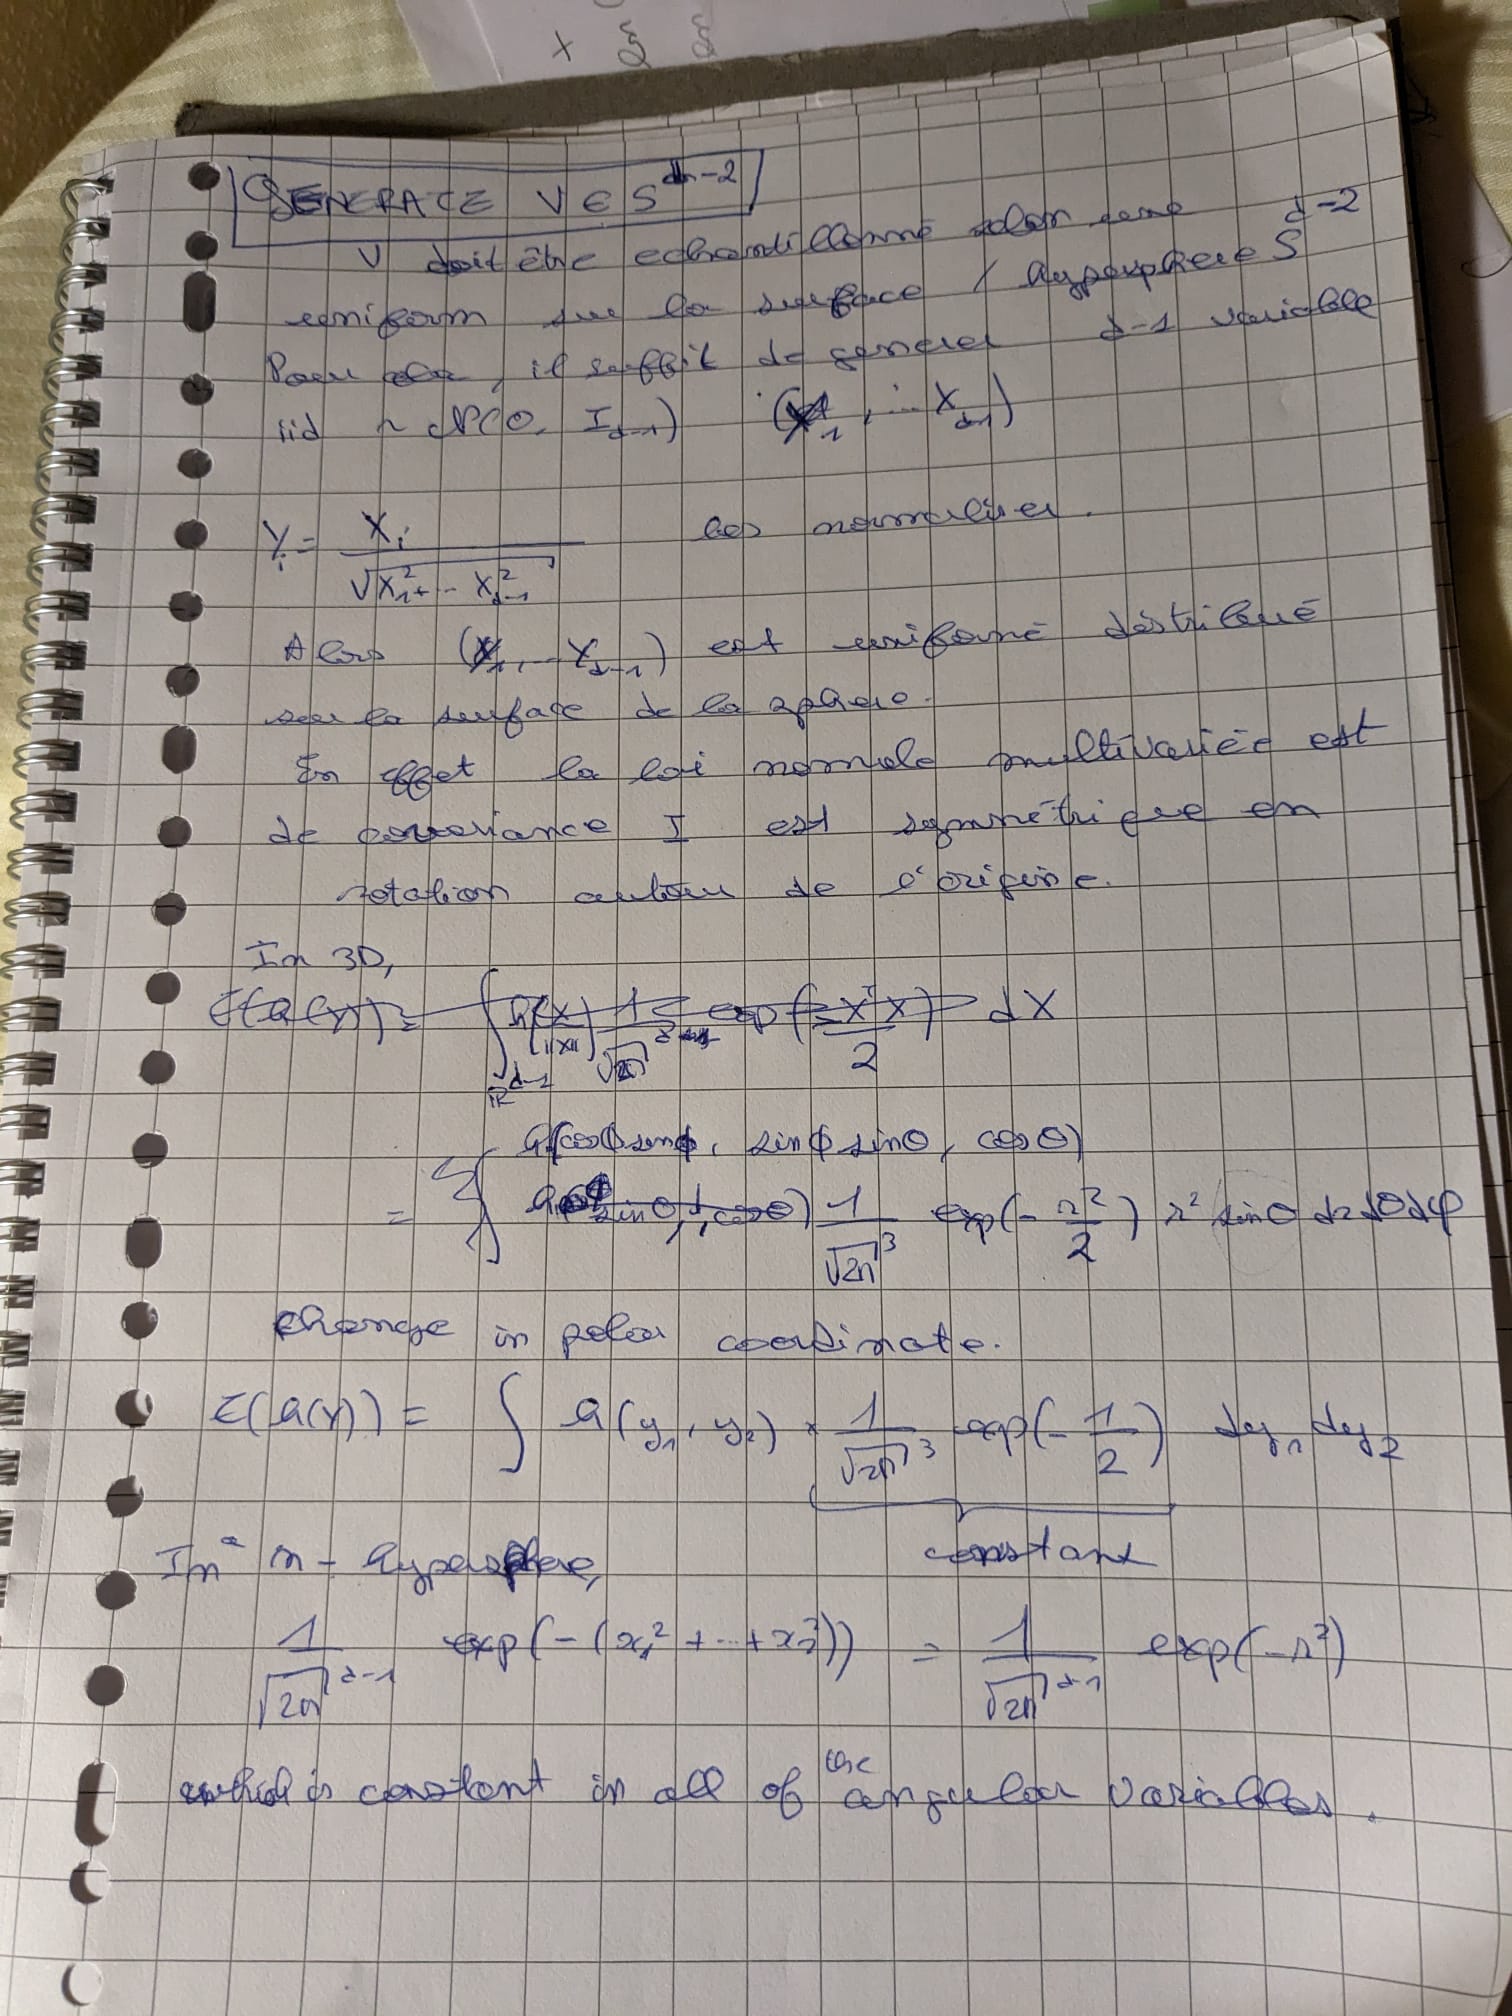 GENERATE V ∈ S^{d-2}
V doit être echantillonné selon une
uniform sur la surface / hypersphere S^{d-2}
Pour cela, il suffit de generer d-1 variable
iid ~ N(0, I_{d-1}) (X_1, ... X_{d-1})
Y_i = X_i / √(X_1^2 + ... X_{d-1}^2) les normaliser.
Alors (Y_1, ... Y_{d-1}) est uniformé distribué
sur la surface de la sphere.
En effet la loi normale multivariée est
de covariance I est symmétrique en
rotation autour de l'origine.
In 3D,
E(h(Y)) = ∫_{ℝ^{d-1}} h(X/||X||) 1/√(2π) exp(-X^T X / 2) dX
h(cosϕ sinϕ, sinϕ sinθ, cosθ)
= ∫ 1/√(2π)^3 exp(-r^2/2) r^2 sinθ dr dθ dφ
change in polar coordinate.
E(h(Y)) = ∫ h(y_1, y_2) × 1/√(2π)^3 exp(-1/2) dy_1 dy_2
constant
In a n-hypersphere,
1/√(2π)^{d-1} exp(-(x_1^2 + ... + x_n^2)) = 1/√(2π)^{d-1} exp(-r^2)
which is constant in all of the angular variables.